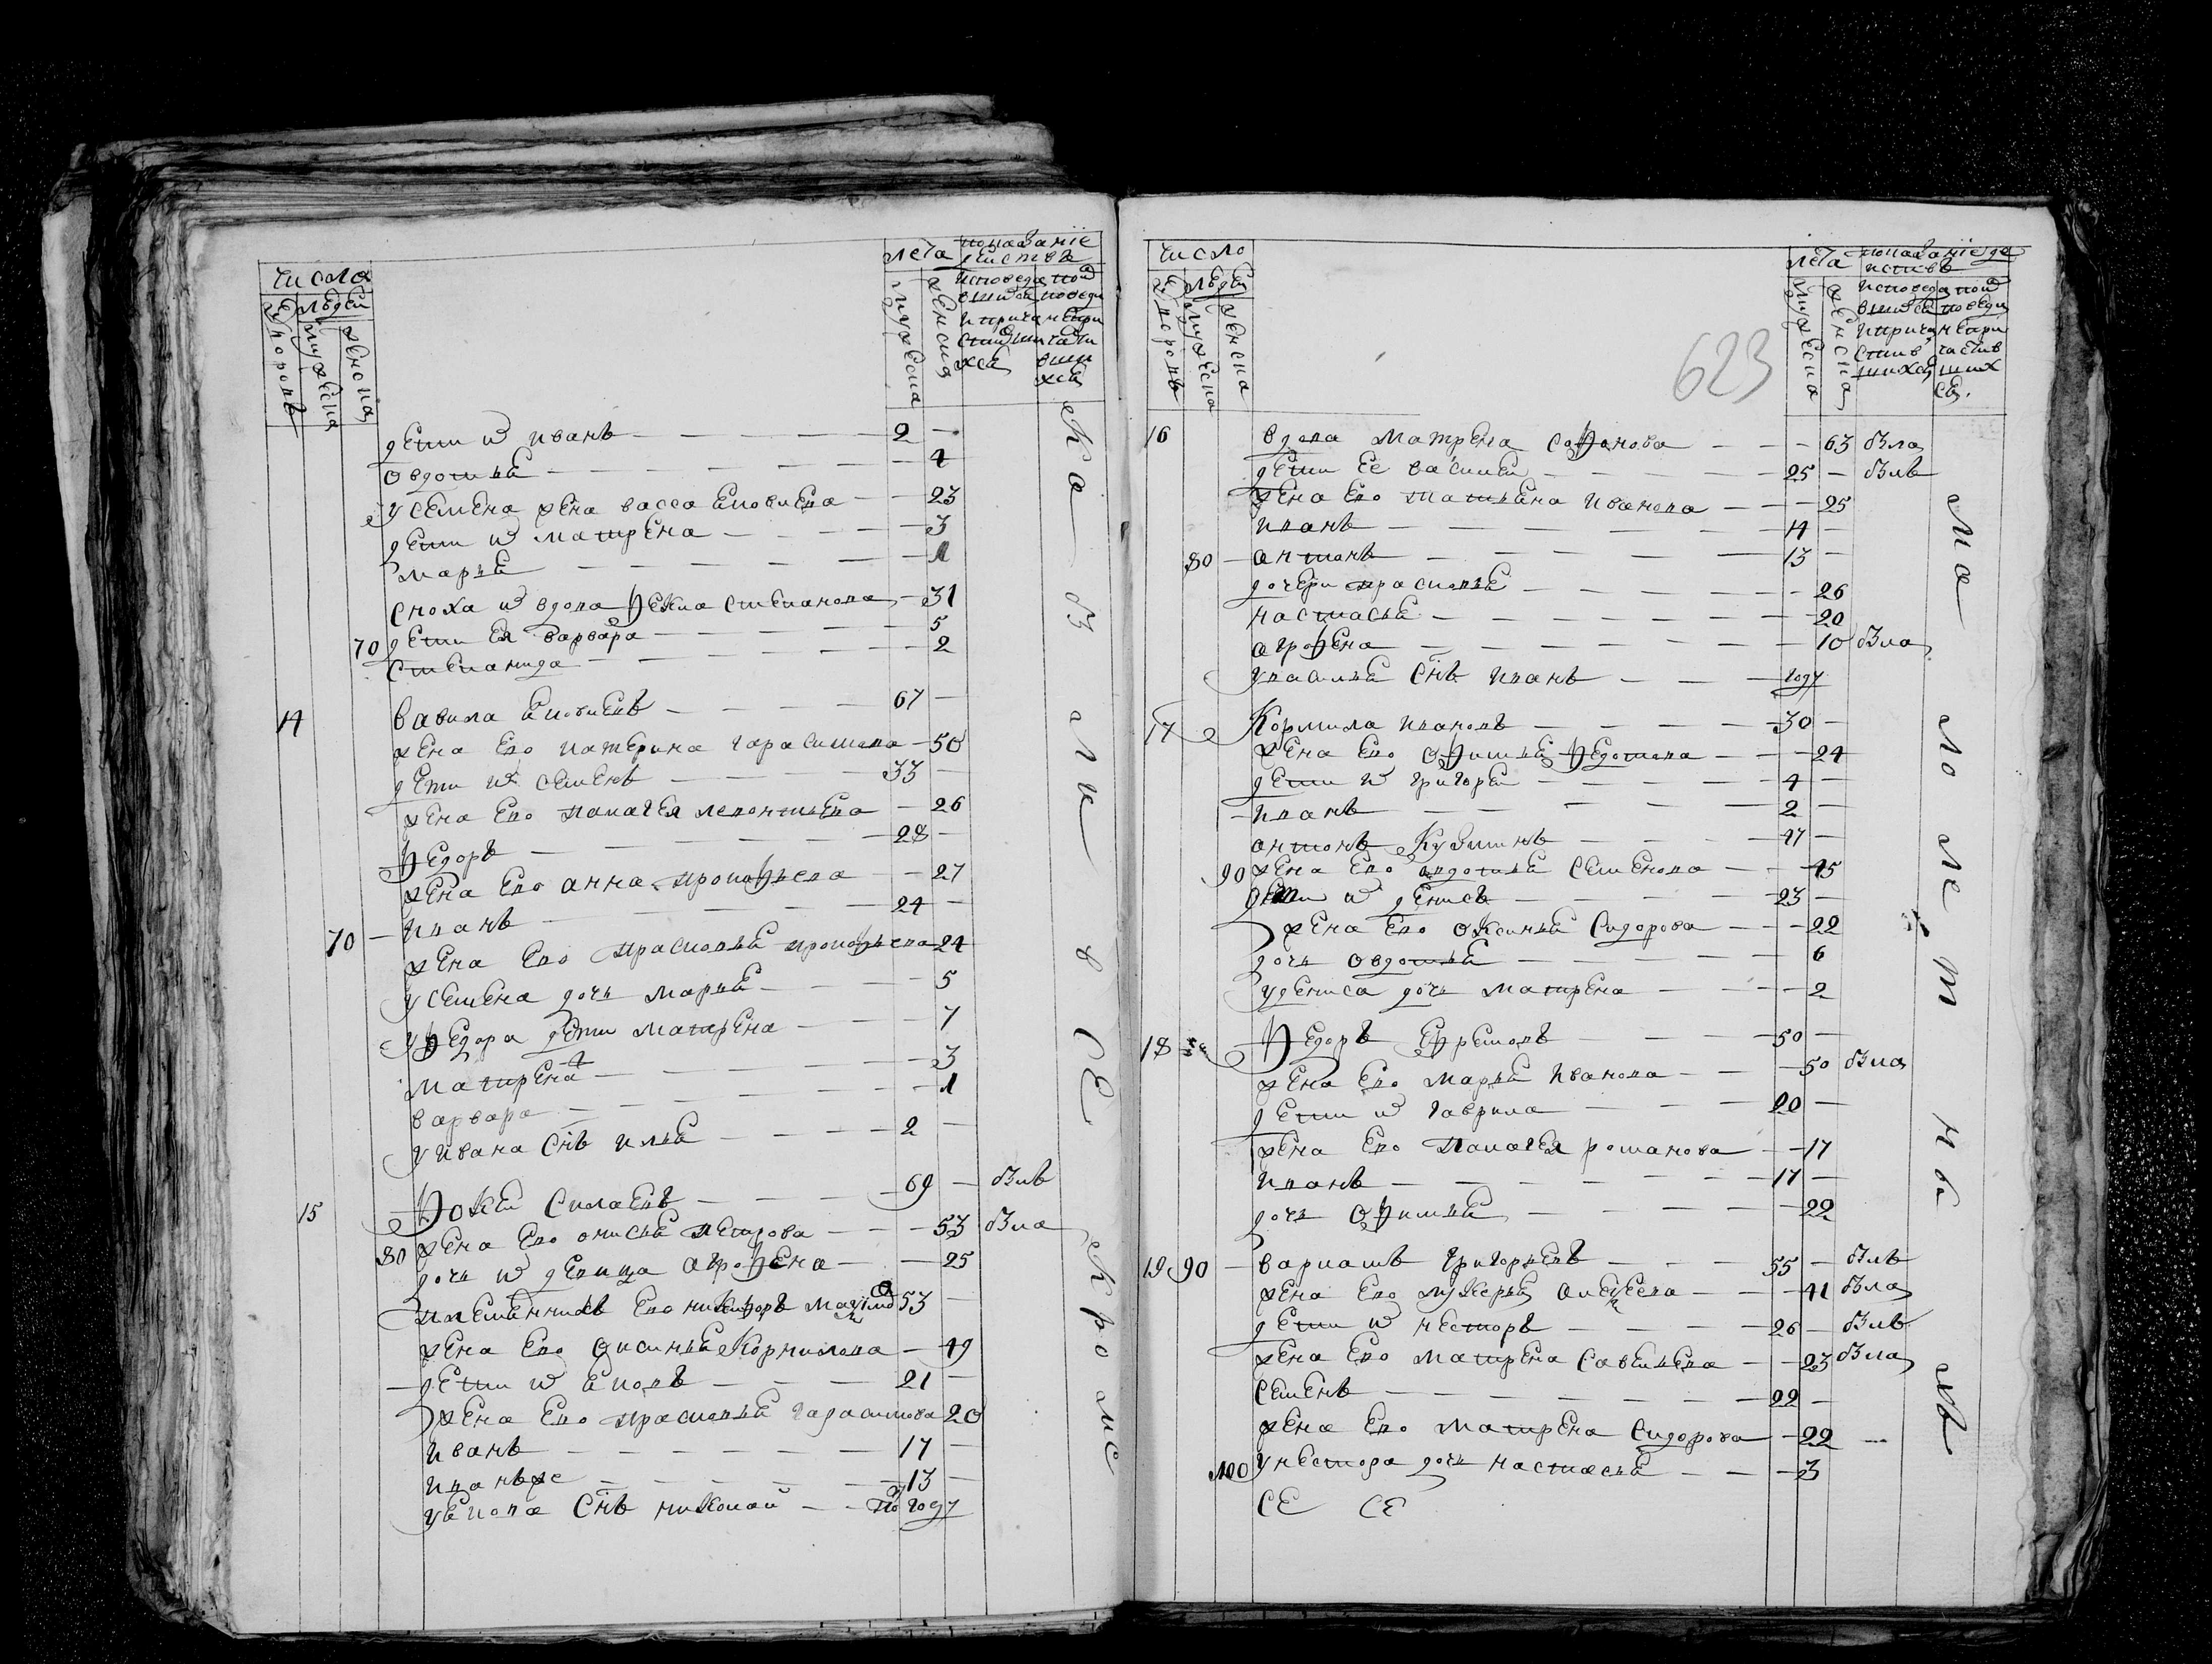 числа
дворовъ
людей
мужеска
женска
лета
мужеска
женска
показаніе
действа
исповеда
вшихся
и прича
стившихся
не испо
ведовавшихся
дети и иванъ 2
овдотья 4
у семена жена васса яковлева 23
дети и матрена 3
марья 1
сноха и вдова фекла степанова 31
70 дети ея варвара 5
степанида 2
14 вавила яковлевъ 67
жена ево катерина гарасимова 50
дети и семенъ 33
жена ево палагея леонтьева 26
федоръ 28
жена ево анна прокофьева 27
70 иванъ 24
жена ево прасковья прокофьева 24
у семена дочь марья 5
у федора дети матрена 7
матрена 3
варвара 1
у ивана снъ илья 2
15 фокей силаевъ 69 бывъ
80 жена ево онисья петрова 53 была
дочь и девица агрофена 25
племянникъ ево никифоръ 53
жена ево оксинья кормилова 49
дети и яковъ 21
жена ево прасковья гарасимова 20
иванъ 17
иванъ же 13
у якова снъ николай по году
ка з а к и се кроме
число
дворовъ
людей
мужеска
женска
623
лета
мужеска
женска
показаніе де
иствъ
16 вдова матрена софонова 63 была
дети ее василей 25 бывъ
жена ево матрена иванова 25
иванъ 14
80 антонъ 13
дочери прасковья 26
настасья 20
агрофена 10 была
у василья снъ иванъ году
17 Кормила ивановъ 30
жена ево офимья федотова 24
дети и григорей 4
иванъ 2
антонъ Кузминъ 47
90 жена ево овдотья семенова 45
дети и денисъ 23
жена ево оксинья сидорова 22
дочь овдотья 6
у дениса дочь матрена 2
18 федоръ ефремовъ 50
жена ево марья иванова 50 была
дети и гаврила 20
жена ево палагея романова 17
иванъ 17
дочь офимья 22
19 90 варламъ григорьевъ 55 бывъ
жена ево лукерья алексеева 41 была
дети и несторъ 26 бывъ
жена ево матрена савельева 23 была
семенъ 22
жена ево матрена сидорова 22
100 у нестора дочь настасья 3
се се
ма ло ле т н ы